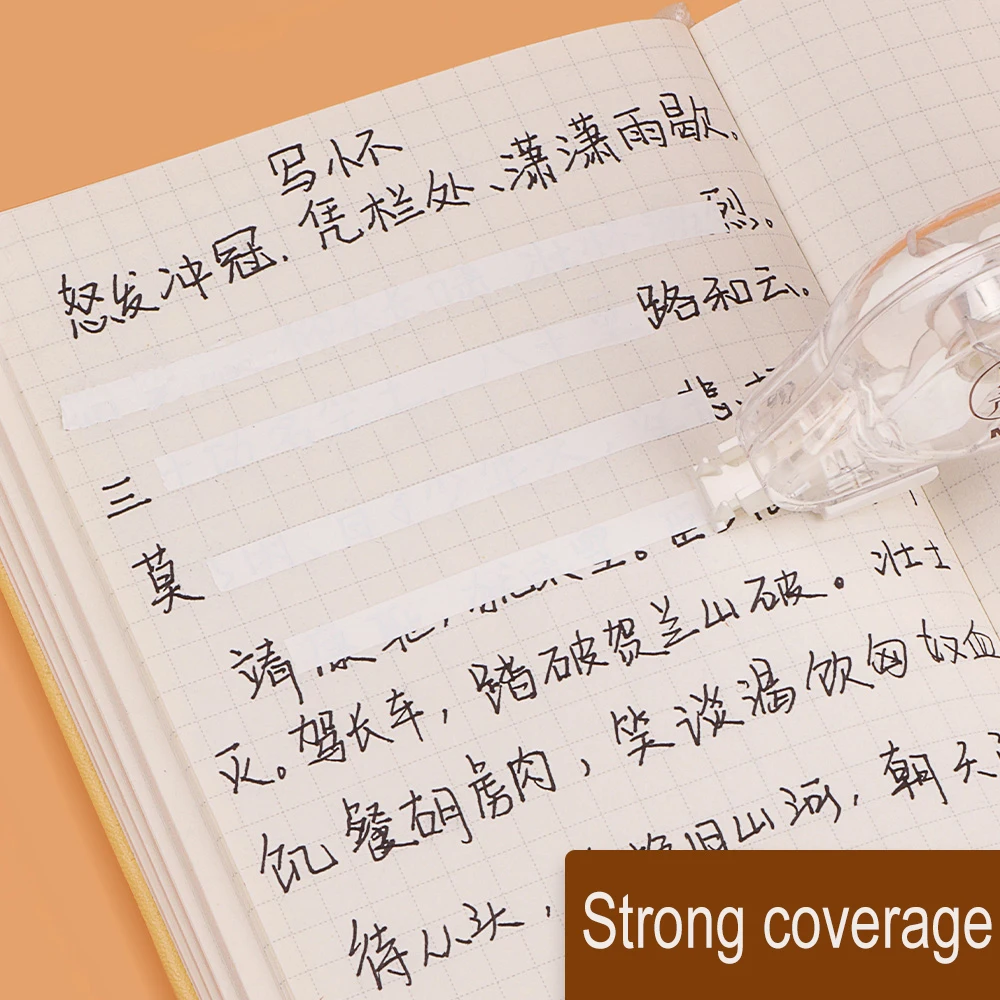 写怀
怒发冲冠，凭栏处、潇潇雨歇。
烈。
三 路和云。
莫
靖
灭。驾长车，踏破贺兰山破。壮士
饥餐胡虏肉，笑谈渴饮匈奴血
待从头，旧山河，朝天
Strong coverage